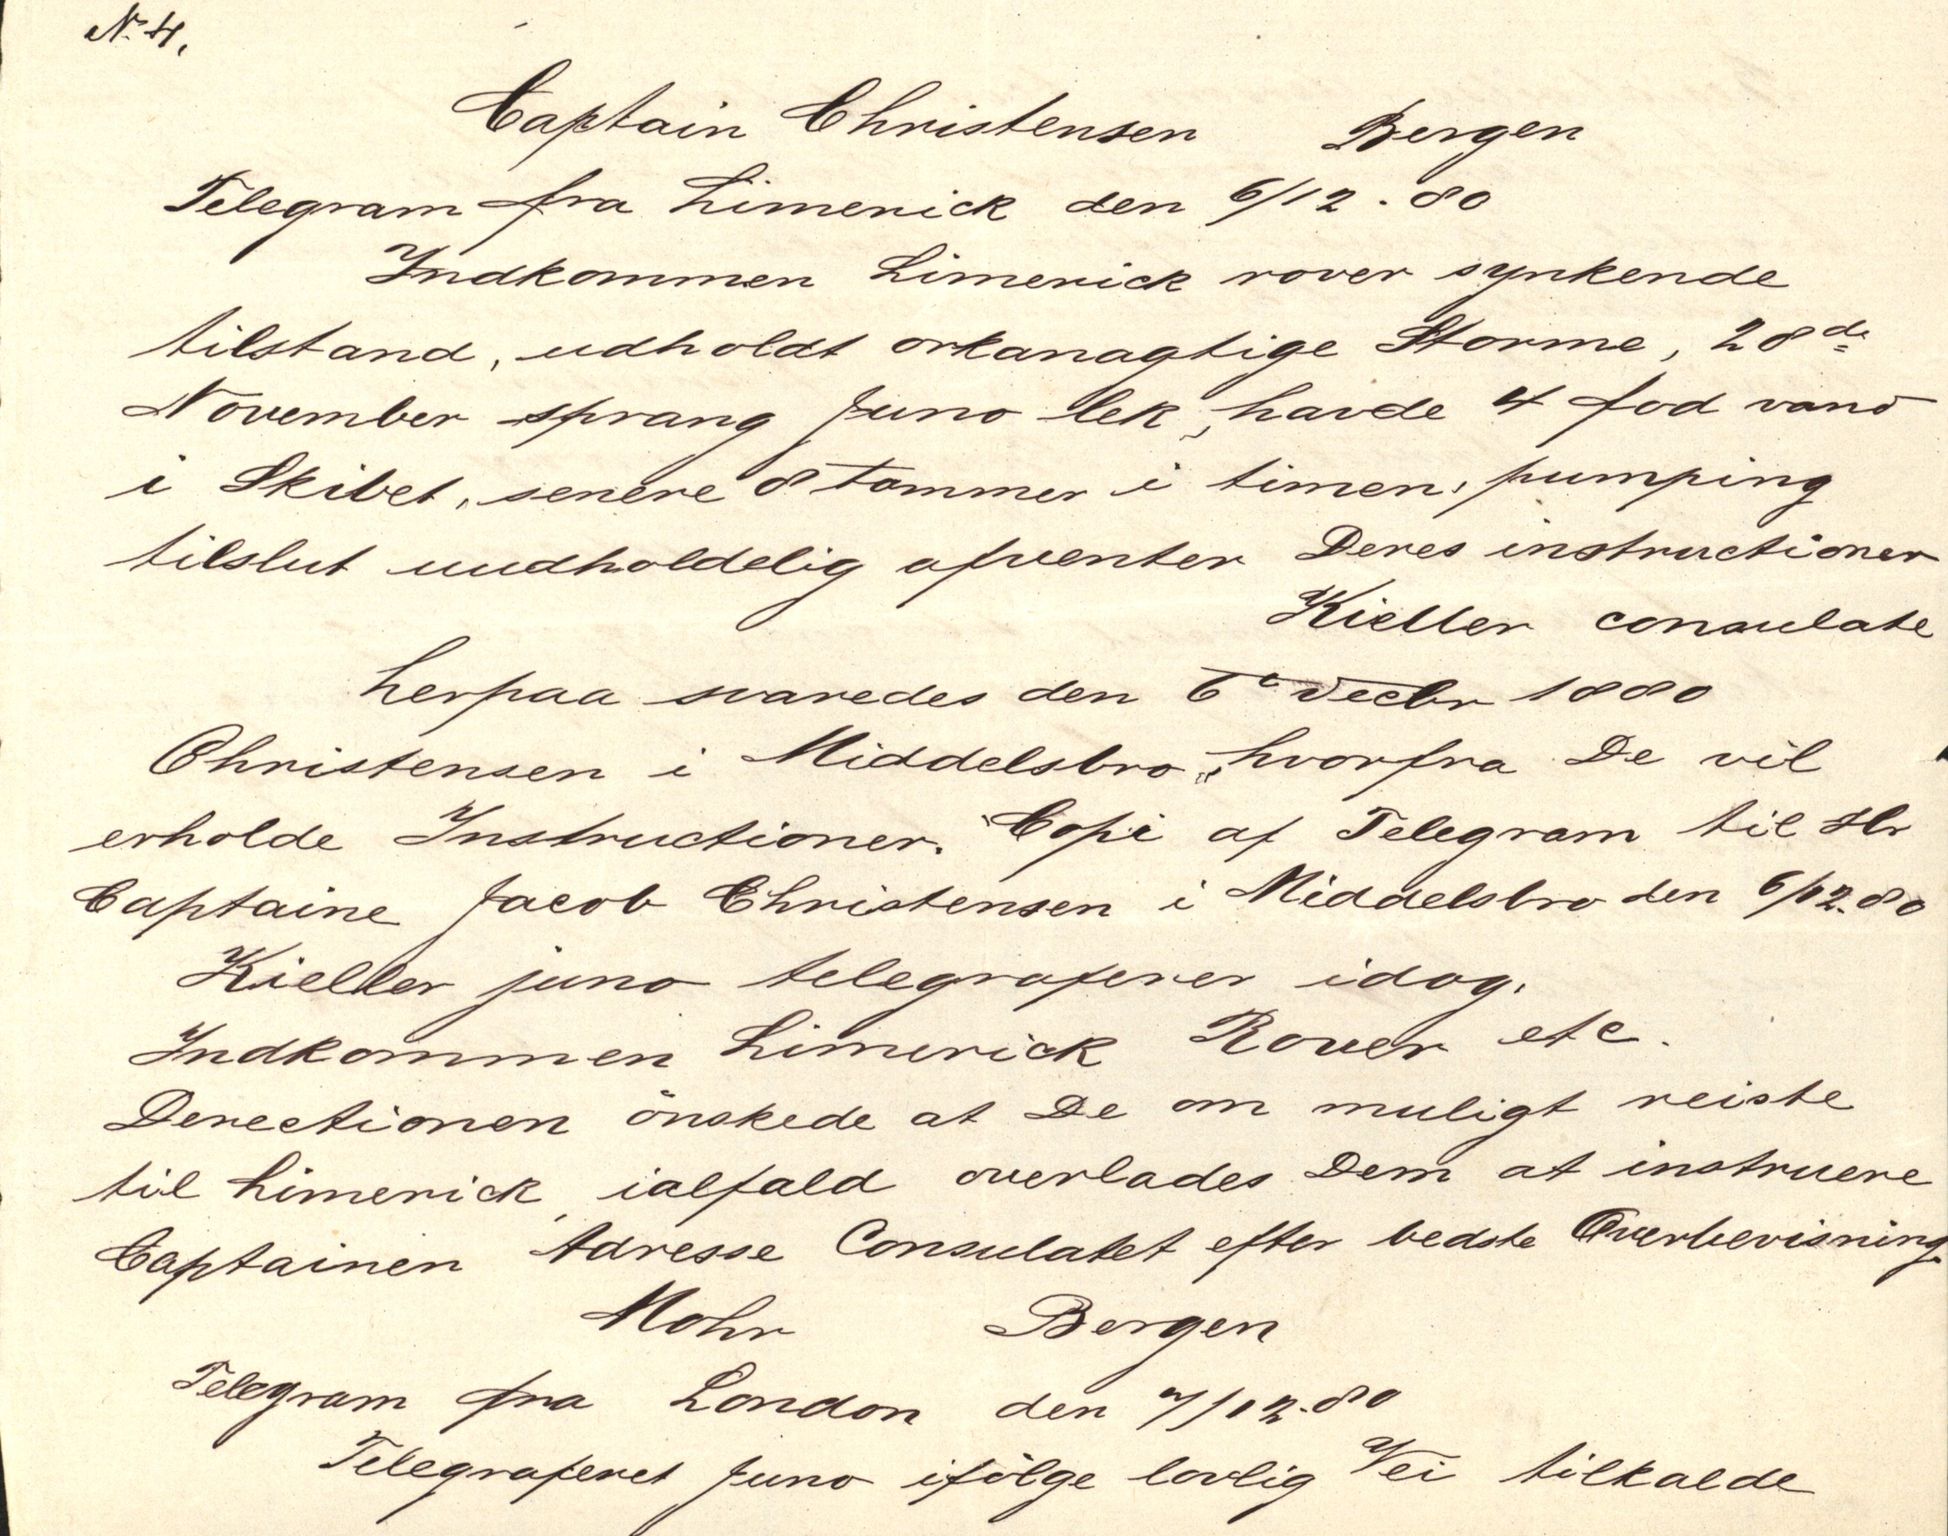 N. 4.
Captain Christensen Bergen
Telegram fra Limerick den 6/12. 80
Indkommen Limerick rover synkende
tilstand, udholdt orkanagtige Storme, 28de
November sprang Juno lek, havde 4 fod vand
i Skibet, senere 8 tommer i timen, pumping
tilslut uudholdelig afventer Deres instructioner
Kieller consulate
herpaa svaredes den 6te Decbr 1880
Christensen i Middelsbro, hvorfra De vil
erholde Instructioner. Copi af Telegram til Hr
Captaine Jacob Christensen i Middelsbro den 6/12. 80
Kieller juno telegraferer idag.
Indkommen Limerick Rover etc.
Derectionen önskede at De om muligt reiste
til Limerick, ialfald overlades Dem at instruere
Captainen Adresse Consulatet efter bedste Overbevisning.
Mohr Bergen
Telegram fra London den 7/12. 80
Telegraferet Juno ifölge lovlig Vei tilkalde